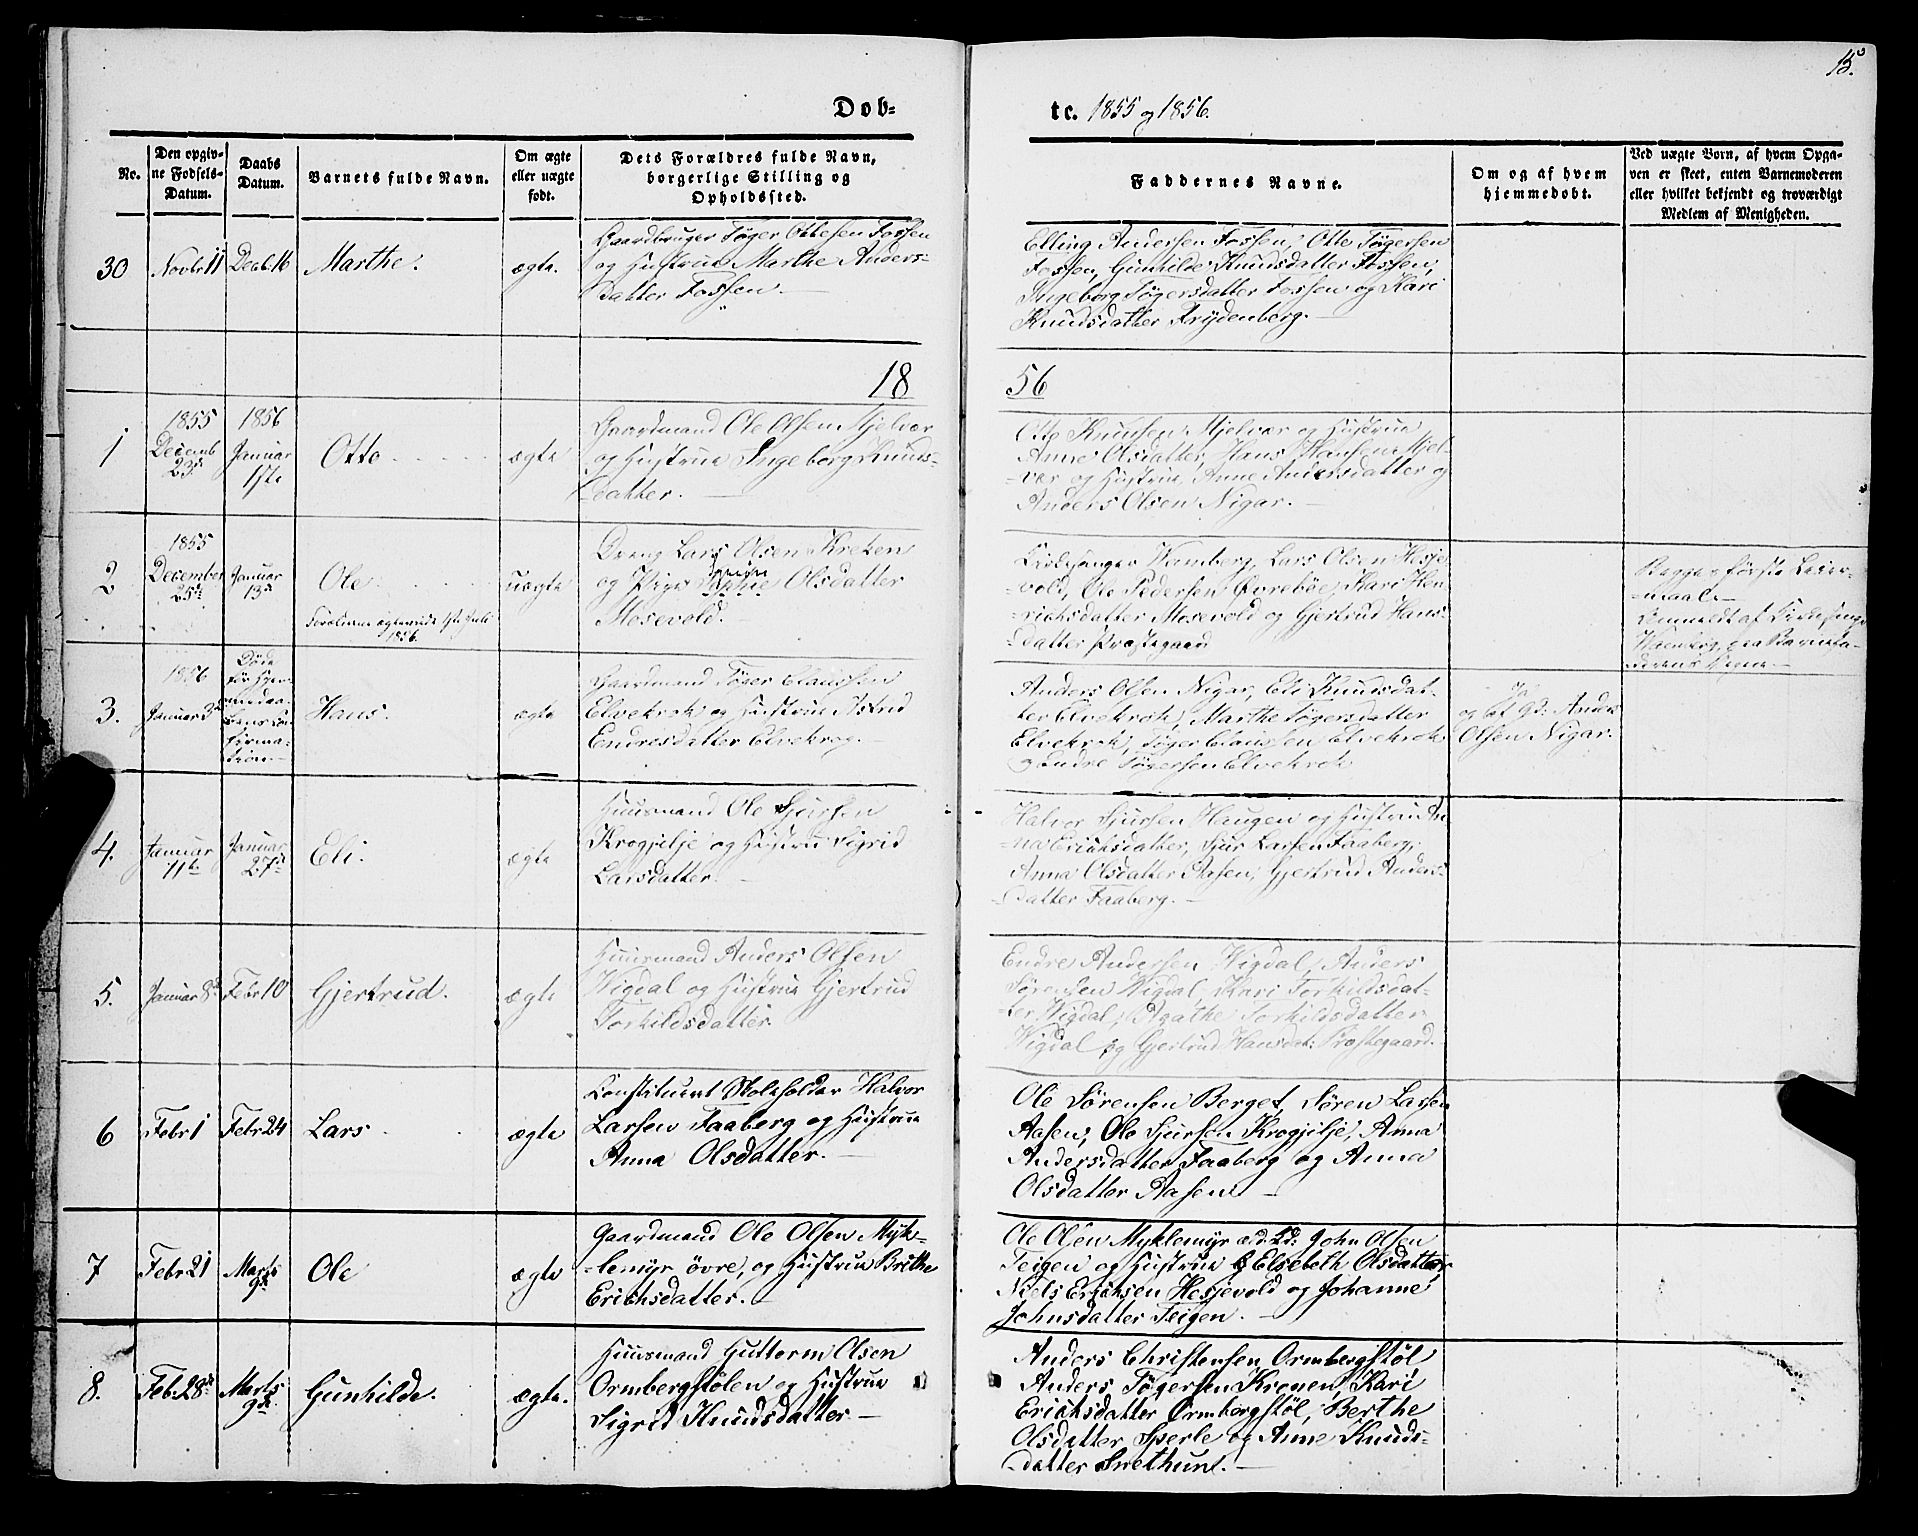 15.
Døb=
te. 1855 og 1856.
No.
Den opgiv=
ne Fødsels=
Datum.
Daabs
Datum.
Barnets fulde Navn.
Om ægte
eller uægte
født.
Dets Forældres fulde Navn,
borgerlige Stilling og
Opholdssted.
Faddernes Navne.
Om og af hvem
hjemmedøbt.
Ved uægte Børn, af hvem Opga=
ven er skeet, enten Barnemoderen
eller hvilket bekjendt og troværdigt
Medlem af Menigheden.
30
Novbr 11
Decb. 16
Marthe.
ægte.
Gaardbruger Tøger Ottesen Fossen
og Hustrue Marthe Anders=
datter Fossen.
Elling Andersen Fossen, Otte Tøgersen
Fossen, Gunhilde Knudsdatter Fossen,
Ingeborg Tøgersdatter Fossen og Kari
Knudsdatter Frydenberg.
18
56
1
1855
Decemb
23d
1856
Januar
1ste
Otto
ægte
Gaardmand Ole Olsen Mjelvær
og Hustrue Ingeborg Knuds=
datter.
Otto Knudsen Mjelvær og Hustrue
Anne Olsdatter, Hans Hansen Mjel=
=vær og Hustrue Anne Andersdatter og
Anders Olsen Nigar.
2
1855
December
25de
Januar
13d
Ole
Forældrene ægteviede 1ste Juli
1856.
uægte
Dreng Lars Olsen Kreken
og Pige Olsdatter
Mosevold.
Kirkesanger Wemberg, Lars Olsen Hesje
vold, Ole Pedersen Øvrebøe, Kari Hen=
=richsdatter Mosevold og Gjertrud Hans=
datter Præstegaard
Begges første Leier=
=maal.
Anmeldt af Kirkesanger
Wemberg paa Barnefa=
derens Vegne
3.
1856
Januar 3d
Døde
før Hjem=
medaa=
bens Con
firma=
tion.
Hans.
ægte
Gaardmand Tøger Claussen
Elvekrok og Hustrue Astrid
Endresdatter Elvekrog.
Anders Olsen Nigar, Eli Knudsdat=
ter Elvekrok, Marthe Tøgersdatter
Elvekrok, Tøger Claussen Elvekrok
og Endre Tøgersen Elvekrok
Ja
og af Gd: Anders
Olsen Nigar.
4.
Januar
11te
Januar
27de
Eli.
ægte
Huusmand Ole Sjursen
Krogjilje og Hustrue Sigrid
Larsdatter.
Halvor Sjursen Haugen og Hustrue An=
=na Erichsdatter, Sjur Larsen Faaberg,
Anna Olsdatter Aasen, Gjertrud Anders=
datter Faaberg.
5.
Januar 8de
Febr 10
Gjertrud.
ægte
Huusmand Anders Olsen
Wigdal og Hustrue Gjertrud
Torkildsdatter.
Endre Andersen Wigdal, Anders
Sørensen Wigdal, Kari Torkildsdat=
=ter Wigdal, Agathe Torkildsdatter
Wigdal og Gjertrud Hansdat: Præstegaard.
6
Febr 1
Febr 24
Lars
ægte
Constitueret Skoleholder Halvor
Larsen Faaberg og Hustrue
Anna Olsdatter.
Ole Sørensen Berget, Søren Larsen
Aasen, Ole Sjursen Krogjilje, Anna
Andersdatter Faaberg og Anna
Olsdatter Aasen
7
Febr 21
Marts
9de
Ole
ægte
Gaardmand Ole Olsen Myk=
=lemyr øvre, og Hustrue Brithe
Erichsdatter.
Ole Olsen Myklemyr, John Olsen
Teigen og Hustrue Elsebeth Olsdatter,
Niels Erichsen Hesjevold og Johanne
Johnsdatter Teigen.
8.
Feb. 28de
Marts
9de
Gunhilde.
ægte.
Huusmand Guttorm Olsen
Ormbergstølen og Hustrue
Sigrid Knudsdatter
Anders Christensen Ormbergstøl
Anders Tøgersen Kronen, Kari
Erichsdatter Ormbergstøl, Berthe
Olsdatter Sperle og Anne Knuds=
datter Snethun.